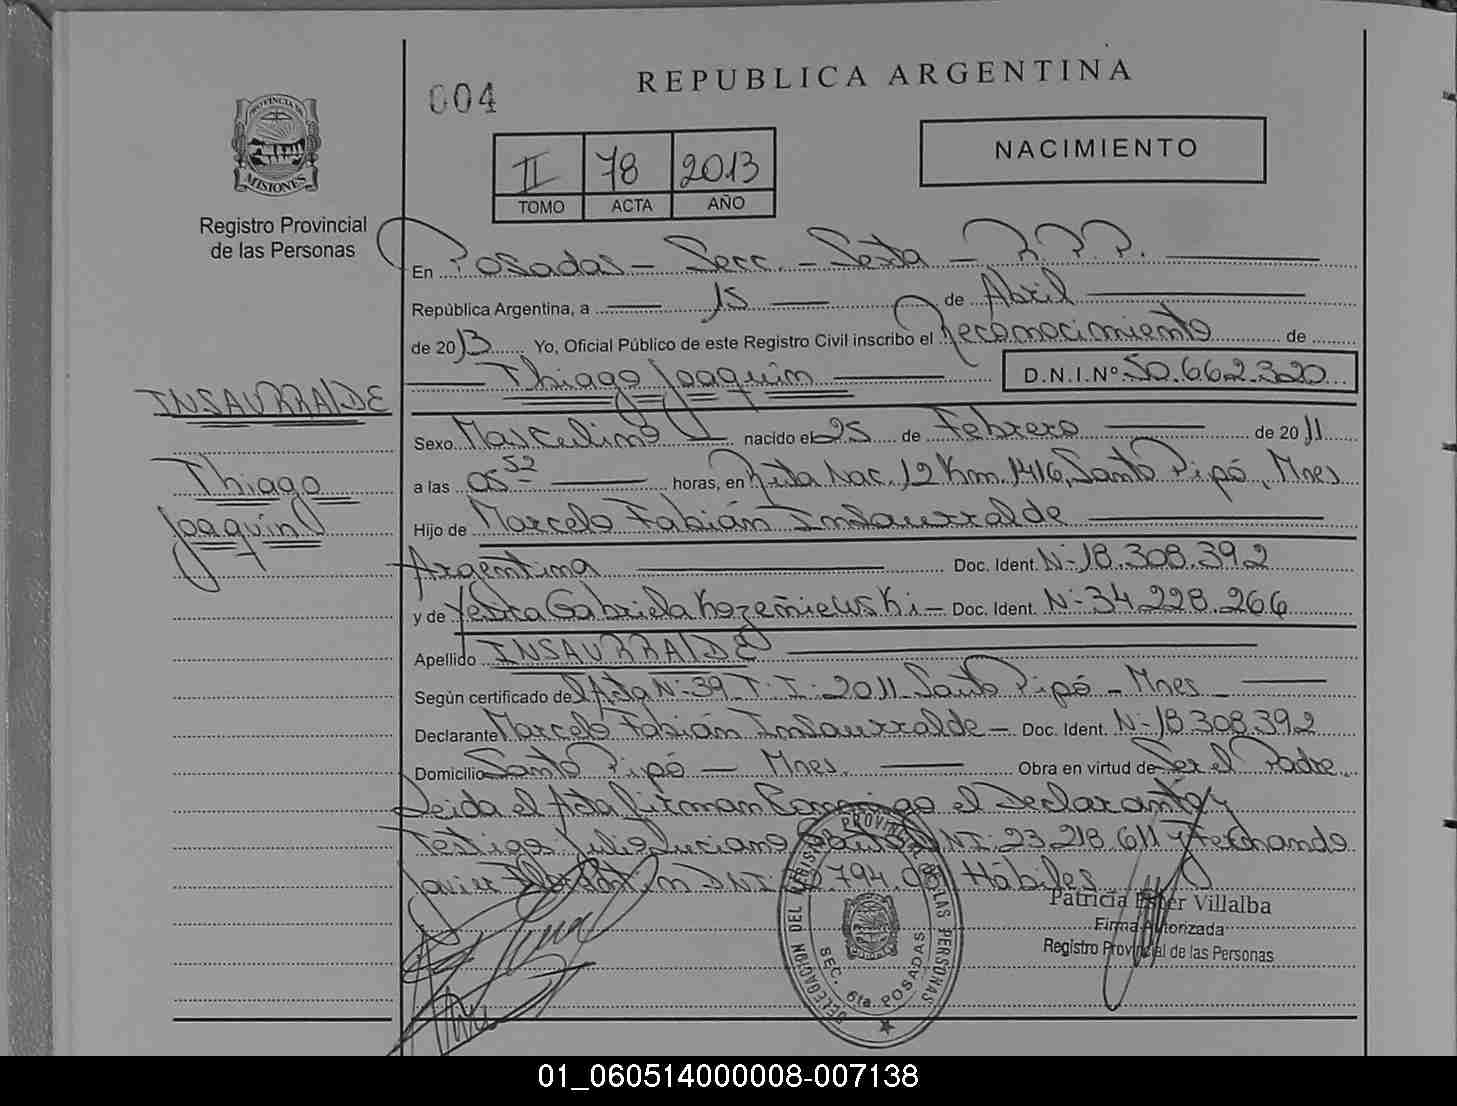 004
REPUBLICA ARGENTINA
PROVINCIA DE MISIONES
Registro Provincial
de las Personas
II 78 2013
TOMO ACTA AÑO
NACIMIENTO
En Posadas - Secc. - Sexta - R.P.P.
República Argentina, a 15 de Abril
de 2013 Yo, Oficial Público de este Registro Civil inscribo el Reconocimiento de
Thiago Joaquín D.N.I.Nº 50.662.320
INSAURRALDE
Thiago
Joaquín
Sexo Masculino nacido el 25 de Febrero de 2011
a las 05 52 horas, en Ruta Nac. 12 Km. 1416, Santo Pipó, Mnes
Hijo de Marcelo Fabián Insaurralde
Argentina Doc. Ident. Nº 18.308.392
y de Gabriela Kozeñiewski - Doc. Ident. Nº 34.228.266
Apellido INSAURRALDE
Según certificado del Acta Nº 39 T: I: 2011 Santo Pipó - Mnes
Declarante Marcelo Fabián Insaurralde - Doc. Ident. Nº 18.308.392
Domicilio Santo Pipó - Mnes. Obra en virtud de Ser el Padre
Leida el Acta firman Conmigo el Declarante y
Testigos Julio Luciano DNI: 23.218.611 y Fernando
Javier DNI 794. Hábiles
DELEGACION DEL REGISTRO PROVINCIAL DE LAS PERSONAS
SEC. 6ta. POSADAS
Patricia Ester Villalba
Firma Autorizada
Registro Provincial de las Personas
01_060514000008-007138